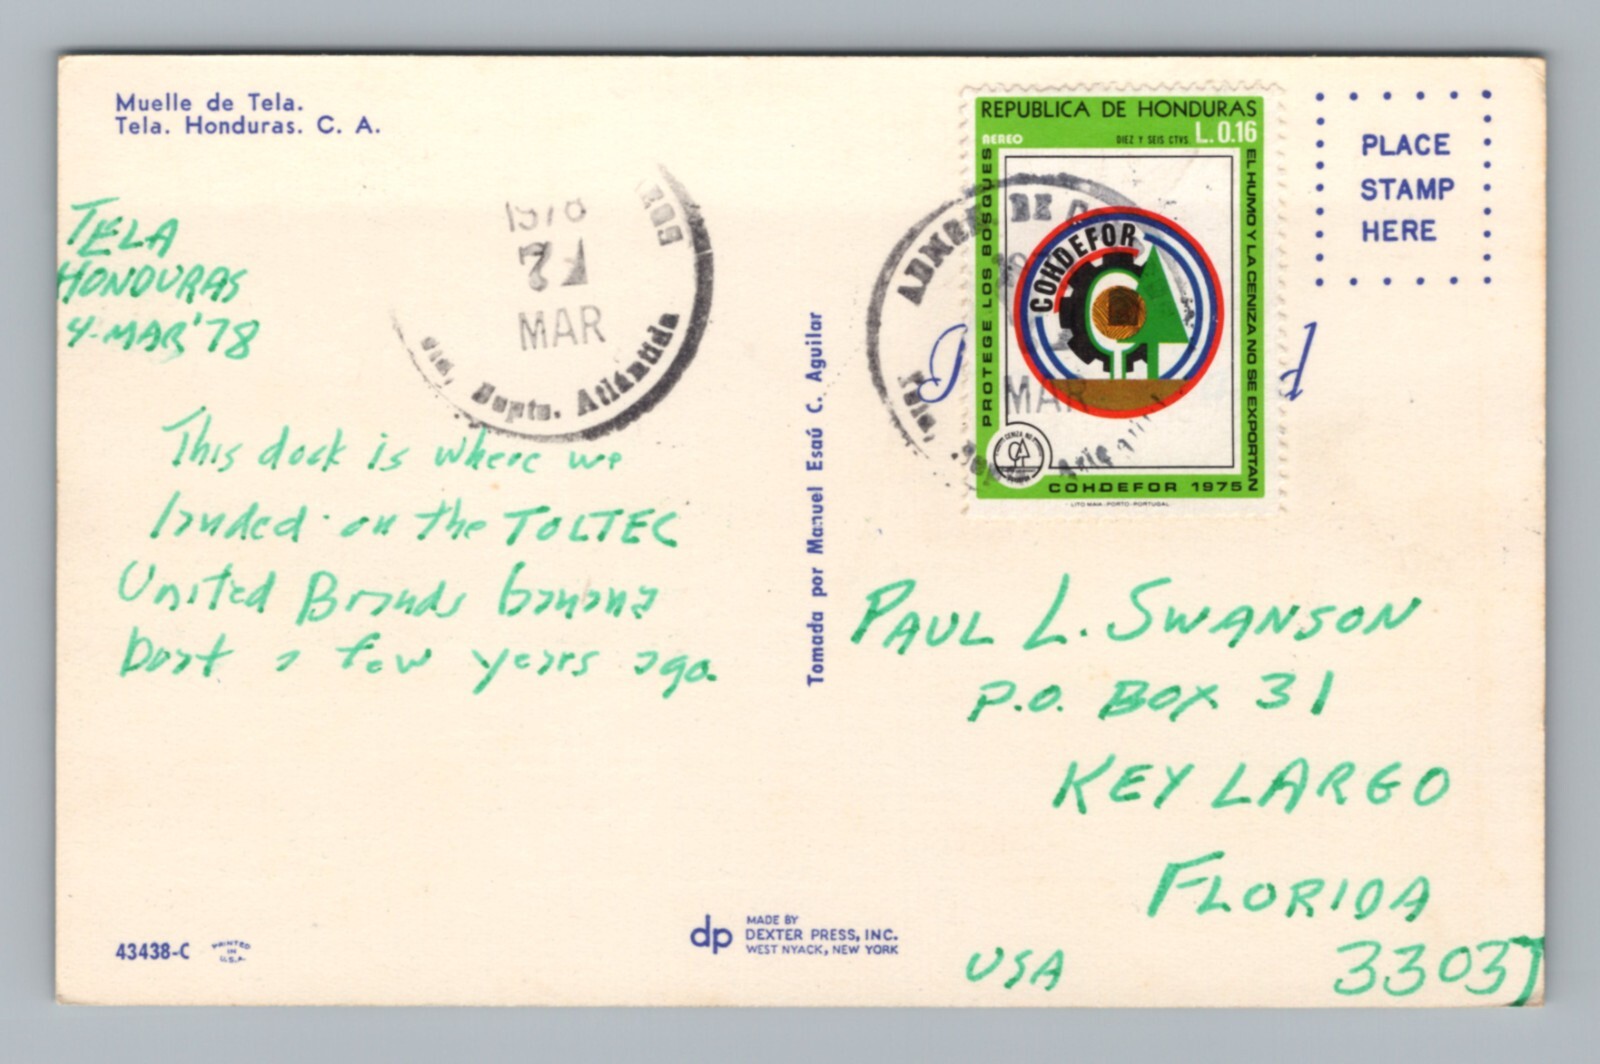 Muelle de Tela.
Tela. Honduras. C. A.
TELA
HONDURAS
4-MAR'78
This dock is where we
landed on the TOLTEC
United Brands banana
boat a few years ago.
1978
MAR
Depto. Atlántida
Tomada por Manuel Esaú C. Aguilar
REPUBLICA DE HONDURAS
AEREO DIEZ Y SEIS CTVS. L.0.16
PROTEGE LOS BOSQUES
EL HUMO Y LA CENIZA NO SE EXPORTAN
COHDEFOR
COHDEFOR 1975
LITO MAIA-PORTO-PORTUGAL
ADMON. DE
MAR
PLACE
STAMP
HERE
PAUL L. SWANSON
P.O. BOX 31
KEY LARGO
FLORIDA
USA 33037
43438-C
PRINTED
IN
U.S.A.
dp
MADE BY
DEXTER PRESS, INC.
WEST NYACK, NEW YORK